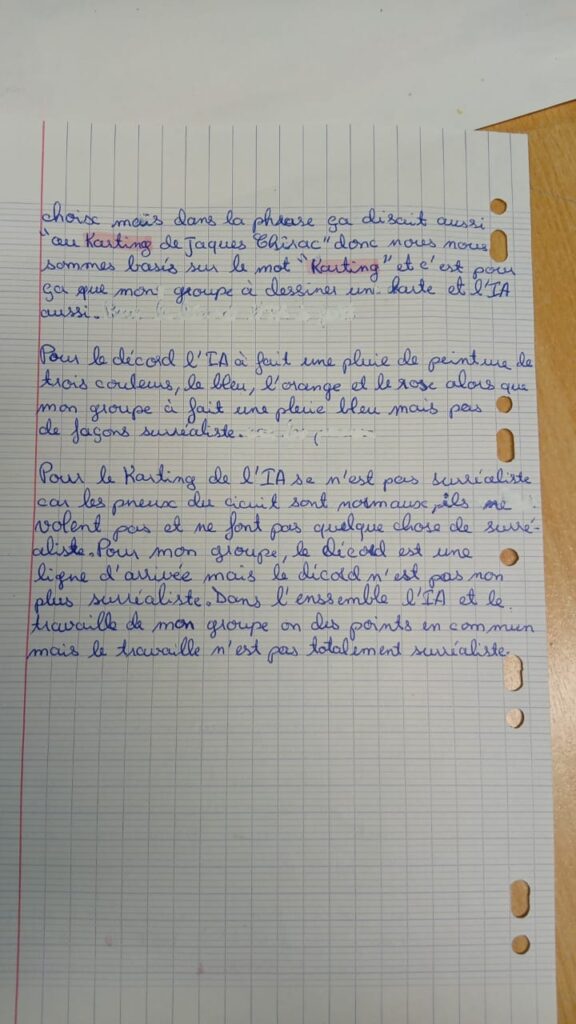 choix mais dans la phrase ça disait aussi
"au Karting de Jaques Chirac" donc nous nous
sommes basés sur le mot "Karting" et c'est pour
ça que mon groupe à dessiner un karte et l'IA
aussi.
Pour le décord l'IA à fait une pluie de peinture de
trois couleurs, le bleu, l'orange et le rose alors que
mon groupe à fait une pluie bleu mais pas
de façons surréaliste.
Pour le Karting de l'IA se n'est pas surréaliste
car les pneux du cicuit sont normaux, ils ne
volent pas et ne font pas quelque chose de surré-
aliste. Pour mon groupe, le décord est une
ligne d'arrivée mais le décord n'est pas non
plus surréaliste. Dans l'enssemble l'IA et le
travaille de mon groupe on des points en commun
mais le travaille n'est pas totalement surréaliste.